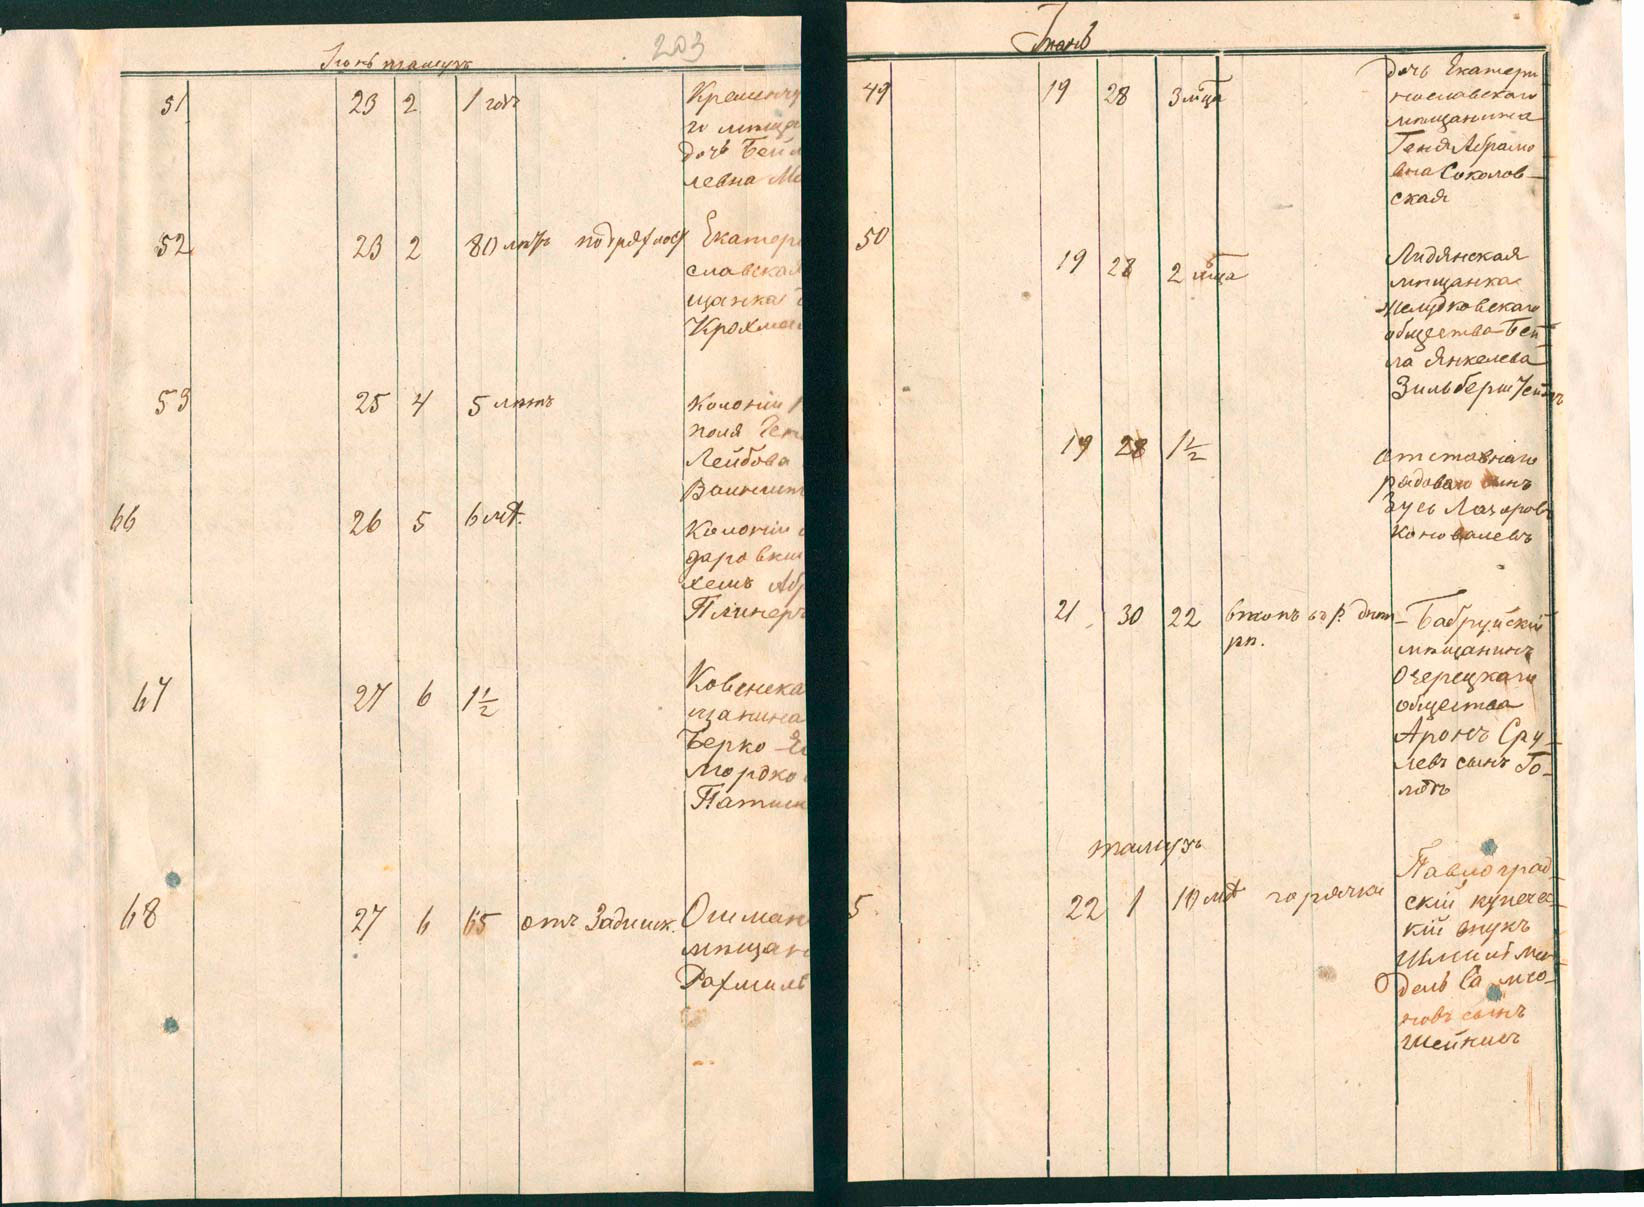 Іюнь тамузъ
203
51 23 2 1 годъ Кременчу
го мѣщан
дочь Бейл
левна Мо
52 23 2 80 лѣтъ Екатери
славская
щанка
Крохмал
53 25 4 5 лѣтъ Колоніи
поля
Лейбова
66 26 5 6 лѣт. Колоніи
даровки
хемъ Абр
Плинеръ
67 27 6 1½ Ковенска
щанина
Берко
Мордко
68 27 6 65 отъ Ошман
мѣщан
Рахмиль
Іюнь
49 19 28 3 мѣца дочь Екатери
нославскаго
мѣщанина
Геня Абрамо
вна Соколов-
ская
50 19 28 2 мѣца Лидянская
мѣщанка
Желудковскаго
общества Бей-
ла Янкелева
Зильберштейнъ
19 28 1½ отставнаго
рядоваго сынъ
Зусь Лазаровъ
Коноваловъ
21 30 22 въ р. Бабруйскій
мѣщанинъ
Озерецкаго
общества
Аронъ Сру-
левъ сынъ Го-
тамузъ
5 22 1 10 лѣт горячка Павлоград-
скій купече-
кій внукъ
Шмуль Мен-
дель
новъ сынъ
Шейнинъ